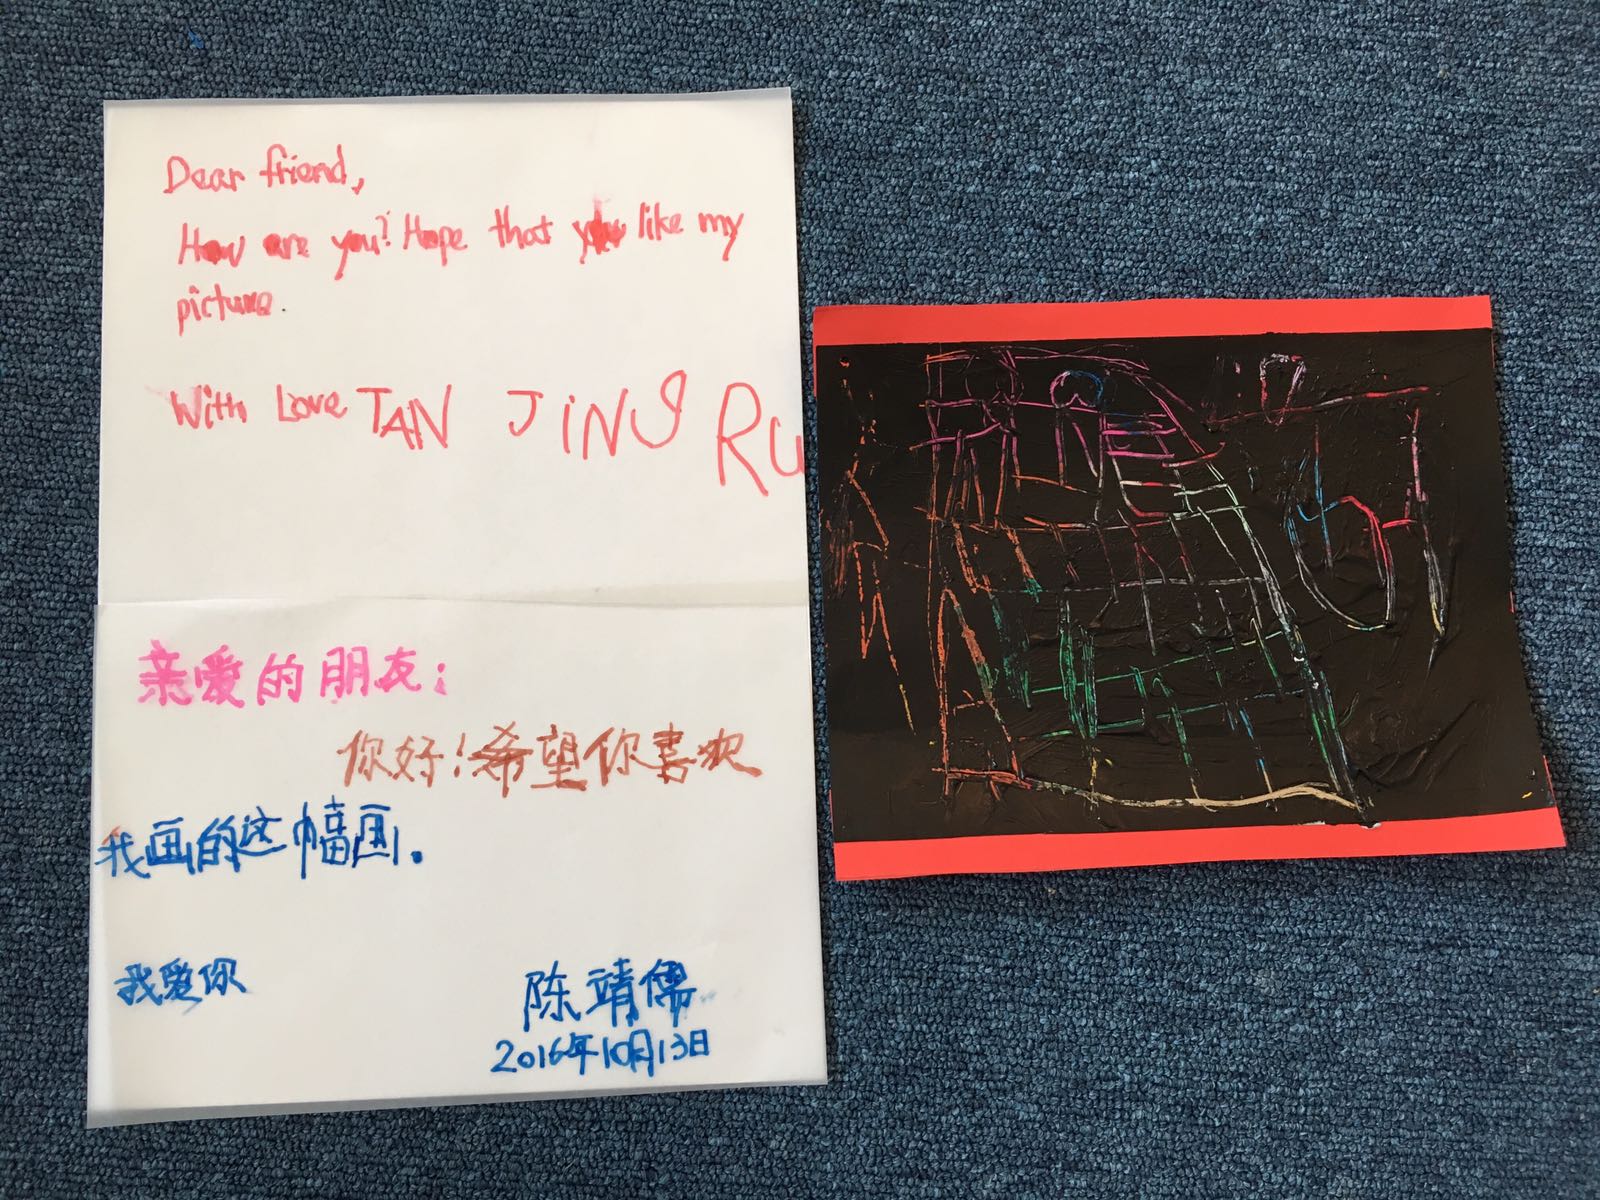 Dear friend,
How are you? Hope that you like my
picture.
With Love TAN JING RU
亲爱的朋友：
你好！希望你喜欢
我画的这幅画。
我爱你
陈靖儒
2016年10月13日